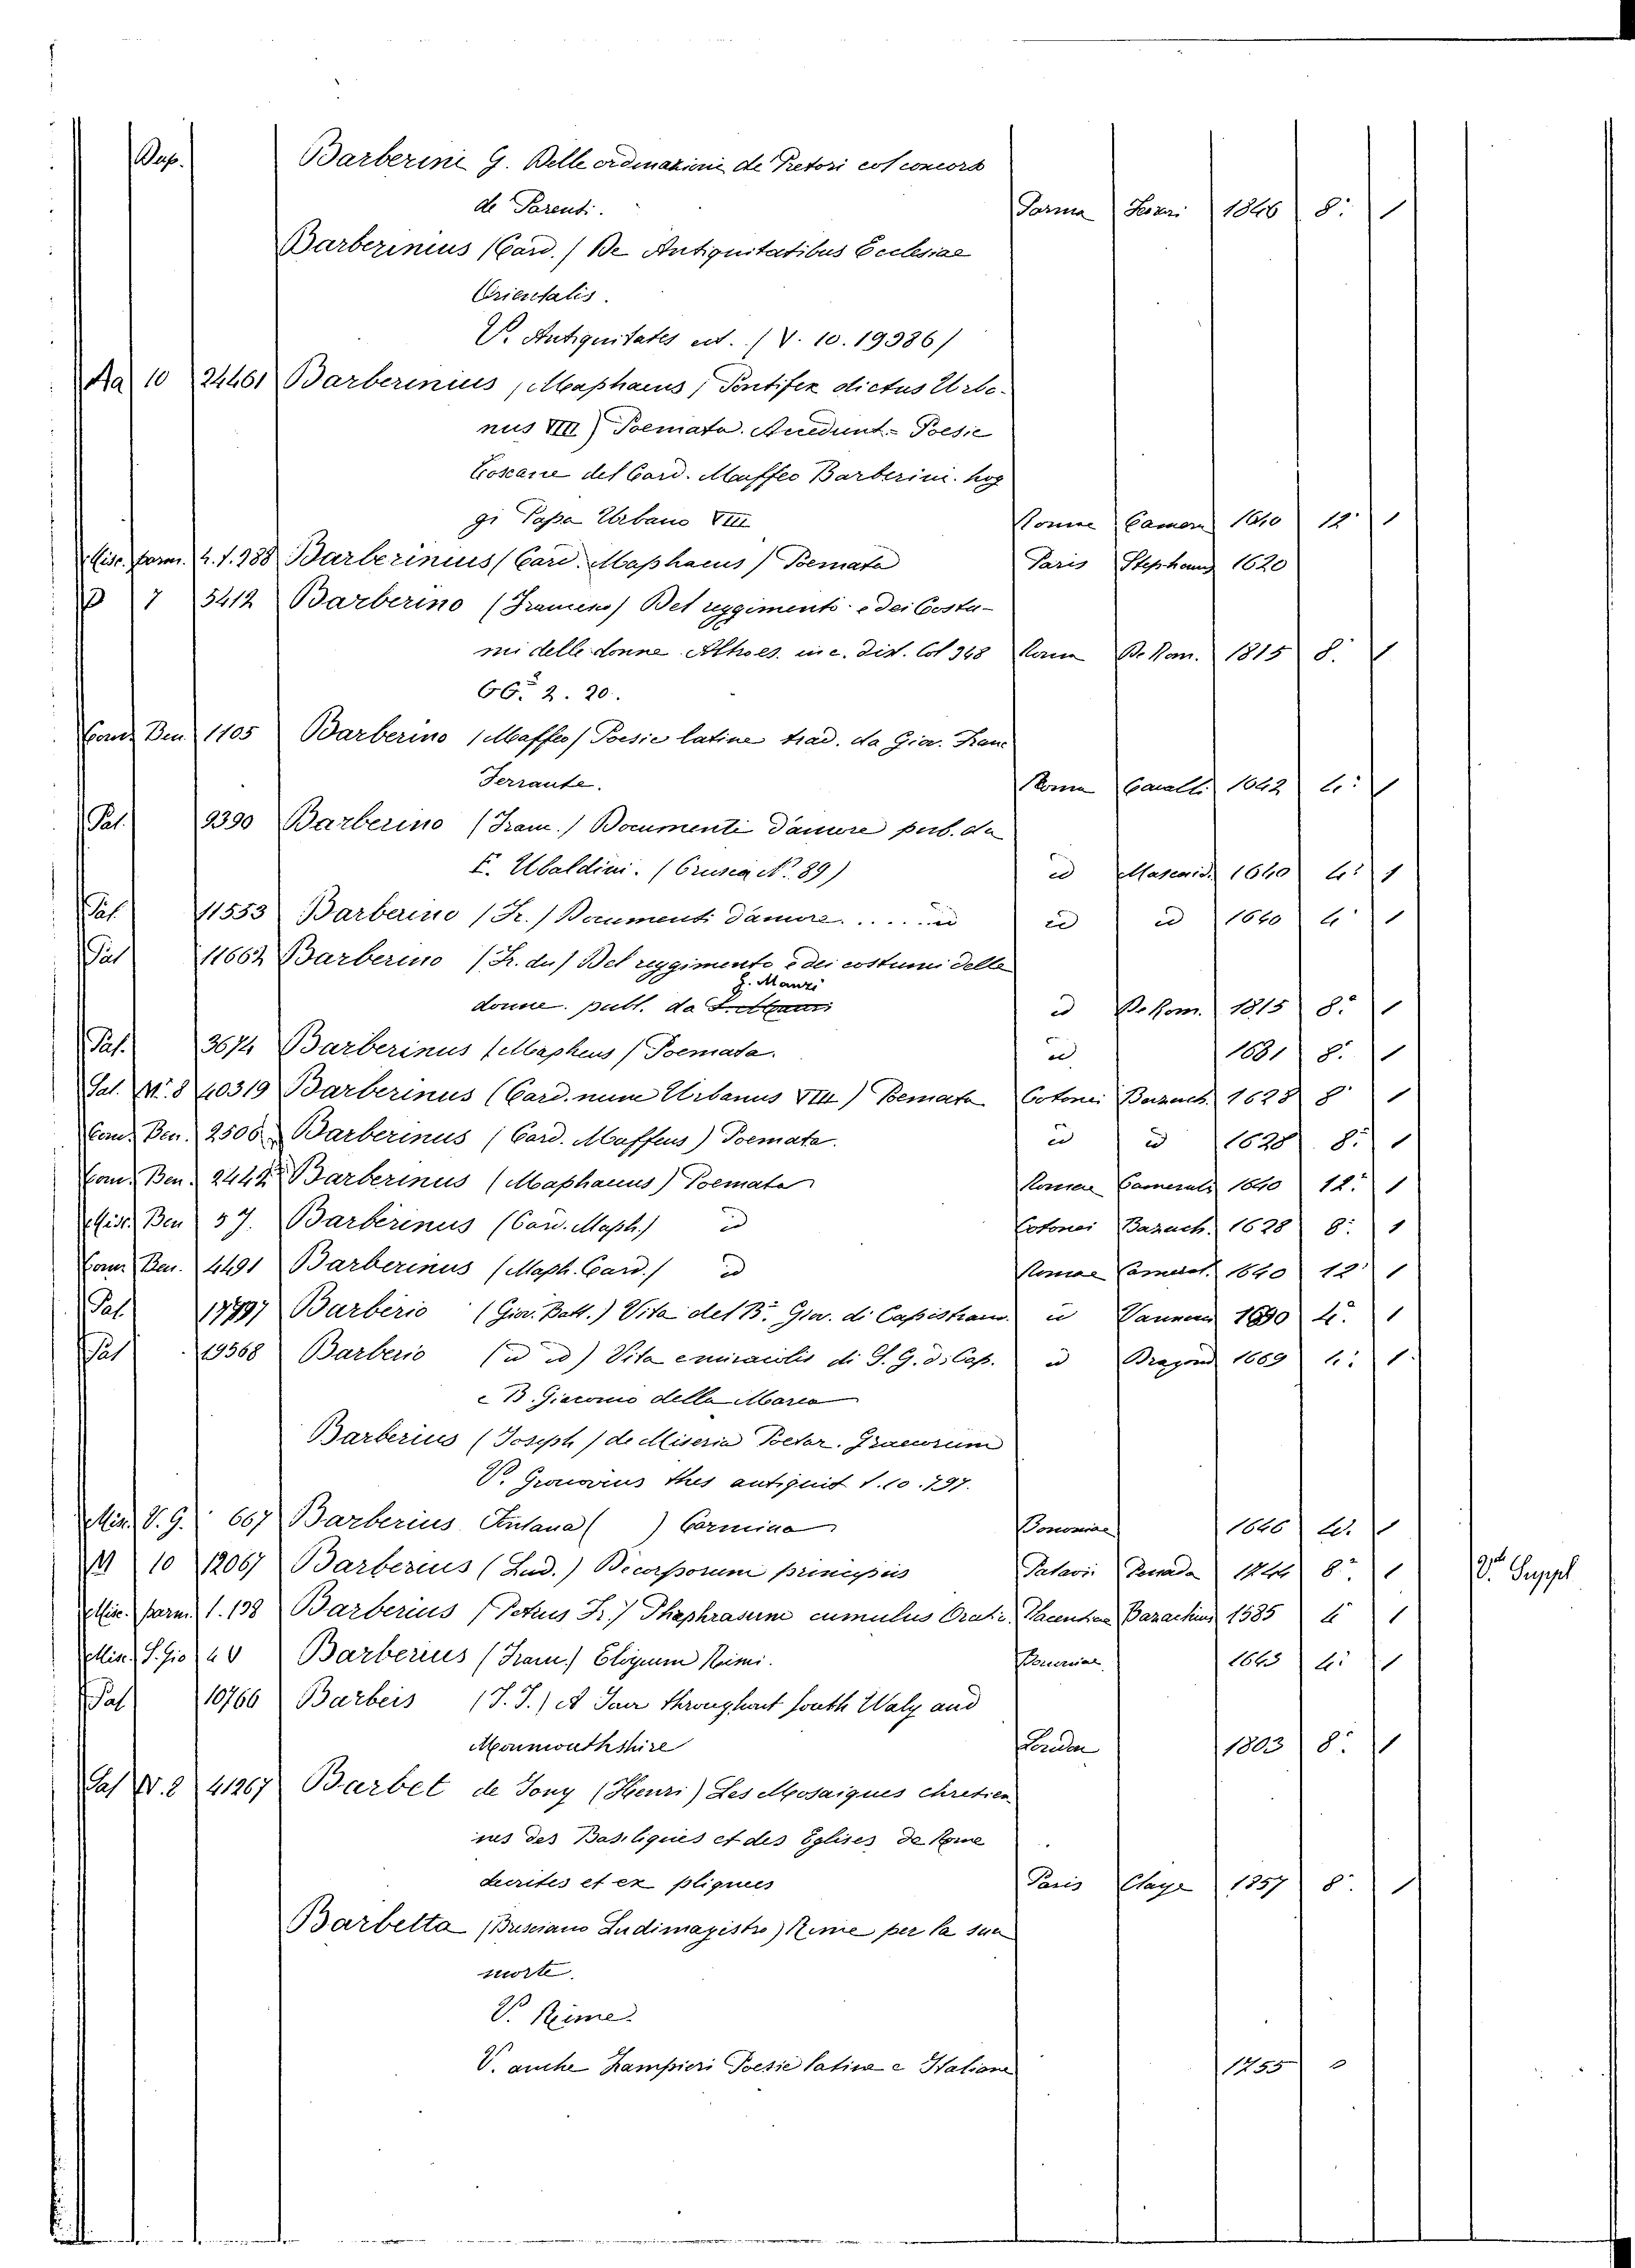 Dup. Barberini G. Delle ordinazioni de Pretori col concors
de Parenti. Parma 1846 8: 1
Barberinius (Card.) De Antiquitatibus Ecclesiae
Orientalis.
V. Antiquitates ect. (V. 10. 19386)
Aa 10 24461 Barberinius (Maphaeus) Pontifex dictus Urba-
nus VIII) Poemata. Accedunt - Poesie
Toscane del Card. Maffeo Barberini. hog
gi Papa Urbano VIII Romae Camera 1640 12: 1
Misc. parm. 4. 1. 288 Barberinius (Card. Maphaeus) Poemata Paris Stephana 1620
P 7 5412 Barberino (Francesco) Del reggimento e dei Costu-
mi delle donne Alt. Roma De Rom. 1815 8. 1
GG. 2. 20.
Conv. Ben. 1105 Barberino (Maffeo) Poesie latine trad. da Gio. Franc
Ferrante. Roma Cavalli 1642 4: 1
Pal. 9390 Barberino (Franc.) Documenti d'amore pub. da
F. Ubaldini. (Crusca N. 89) id Mascard. 1640 4: 1
Pal. 11553 Barberino (Fr.) Documenti d'amore ..... id id id 1640 4: 1
Pal 11662 Barberino (Fr. da) Del reggimento e dei costumi delle
G. Manzi
donne. publ. da id De Rom. 1815 8: 1
Pal. 3674 Barberinus (Mapheus) Poemata. id 1631 8: 1
Pal. N. 8 40319 Barberinus (Card. nunc Urbanus VIII) Poemata Cotonei Bazach. 1628 8 1
Conv. Ben. 2506 Barberinus (Card. Maffeus) Poemata. id id 1628 8: 1
Conv. Ben. 2442 Barberinus (Maphaeus) Poemata Romae Cameralis 1640 12: 1
Misc. Ben 57. Barberinus (Card. Maph.) id Cotonei Bazach. 1628 8: 1
Conv. Ben. 4491 Barberinus (Maph. Card.) id Romae Camerat. 1640 12: 1
Pal 17797 Barberio (Gio. Batt.) Vita del B. Giov. di Capistrano. id Vannucci 1690 4: 1
Pal 19568 Barberio (id id) Vita e miracoli di S. G. di Cap. id Dragond 1669 4: 1
e B. Giacomo della Marca
Barberius (Joseph) de Miseria Poetar. Graecorum
V. Gronovius thes antiquit t. 10. 797.
Misc. V. G. 667 Barberius Antana ( ) Carmina Bononiae 1646 4. 1
M 10 12067 Barberius (Lud.) De corporum principiis Patavii Penada 1744 8: 1 V. Suppl
Misc. parm. 1. 138 Barberius (Petrus Fr.) Phaphrasum cumulus Oratio. Placentiae Bazachius 1585 4 1
Misc. S. Gio 40 Barberius (Franc.) Eligium Reimi. Bononiae. 1643 4: 1
Pal 10766 Barbeis (T. T.) A Tour throughout south Waly and
Monmouthshire London 1803 8: 1
Pal N. 8 41267 Barbet de Jony (Henri) Les Mosaiques chretien
nes des Basiliques et des Eglises de Rome
decrites et ex pliques Paris Claye 1857 8. 1
Barbetta (Busciano Ludimagistro) Rime per la sua
morte.
V. Rime.
V. anche Zampieri Poesie latine e Italiane 1755